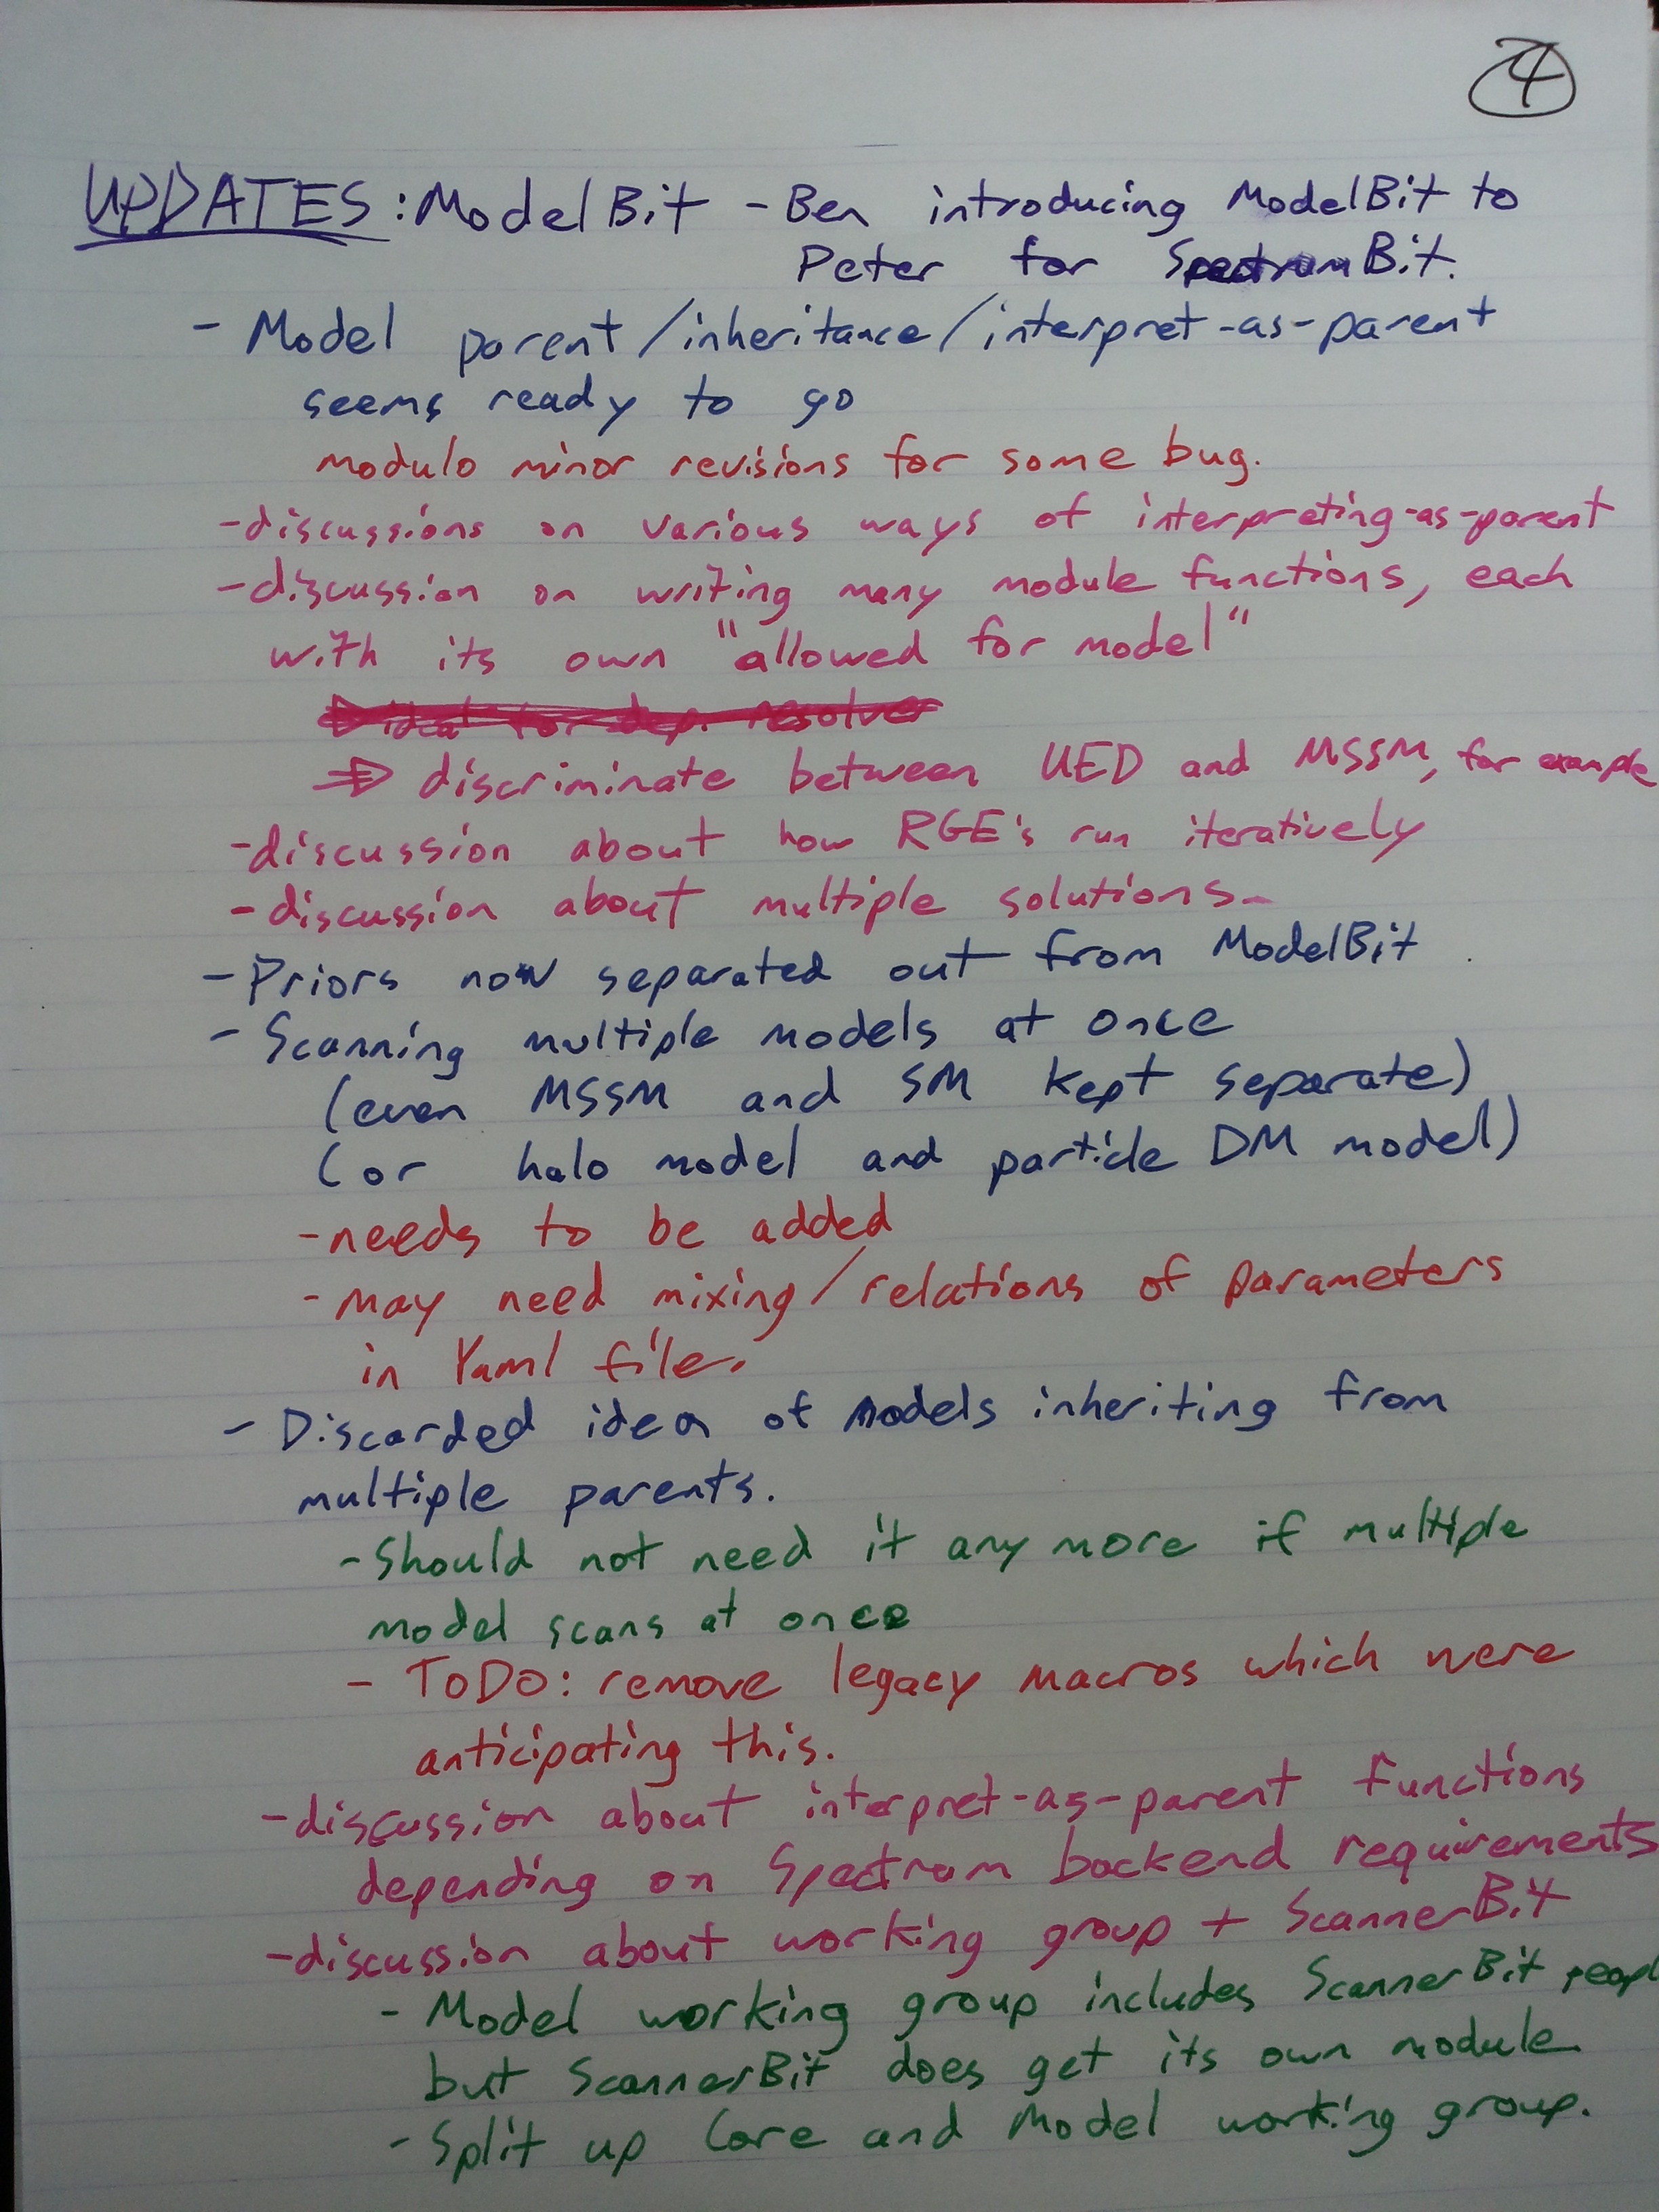 4
UPDATES: ModelBit - Ben introducing ModelBit to
Peter for SpectrumBit.
- Model parent/inheritance/interpret-as-parent
seems ready to go
modulo minor revisions for some bug.
- discussions on various ways of interpreting-as-parent
- discussion on writing many module functions, each
with its own "allowed for model"
⇒ ideal for dep. resolver
⇒ discriminate between UED and MSSM, for example
- discussion about how RGE's run iteratively
- discussion about multiple solutions.
- Priors now separated out from ModelBit.
- Scanning multiple models at once
(even MSSM and SM kept separate)
(or halo model and particle DM model)
- needs to be added
- may need mixing/relations of parameters
in Yaml file.
- Discarded idea of models inheriting from
multiple parents.
- Should not need it any more if multiple
model scans at once
- ToDo: remove legacy macros which were
anticipating this.
- discussion about interpret-as-parent functions
depending on Spectrum backend requirements
- discussion about working group + ScannerBit
- Model working group includes ScannerBit peopl
but ScannerBit does get its own module
- Split up Core and Model working group.